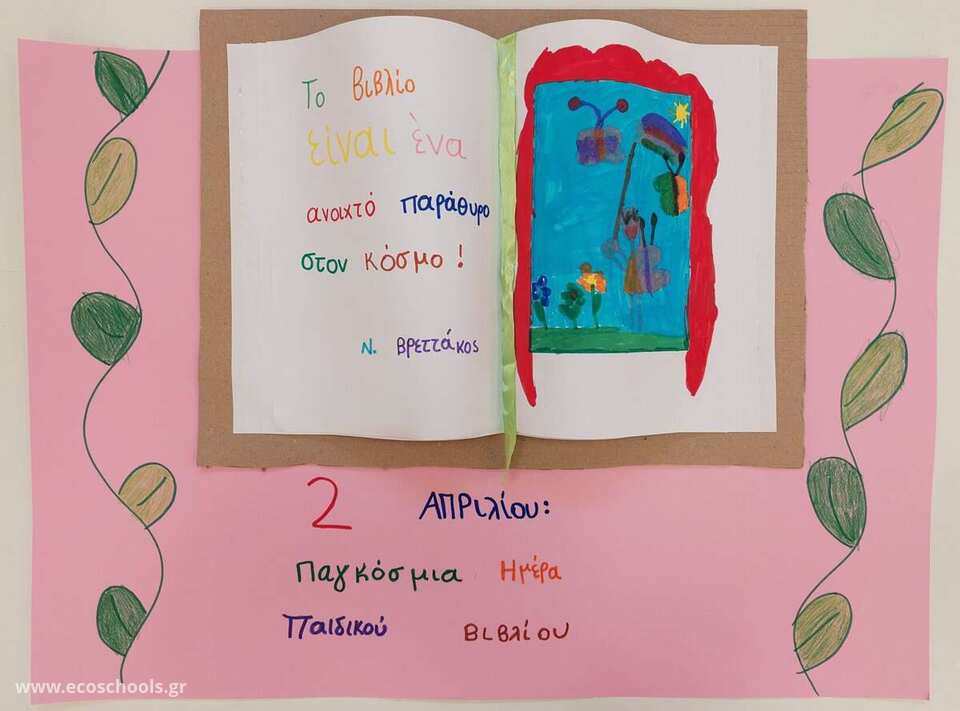 Το βιβλίο
είναι ὲνα
ανοιχτό παράθυρο
στον κόσμο !
Ν. Βρεττάκος
2 Απριλίου:
Παγκόσμια Ημέρα
Παιδικού Βιβλίου
www.ecoschools.gr